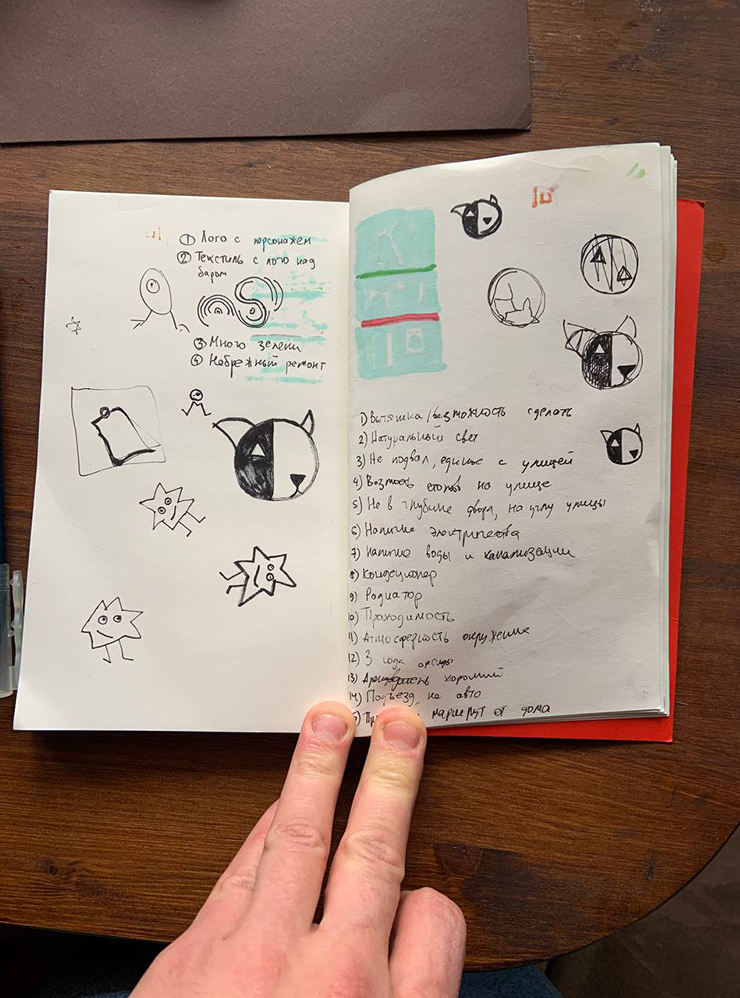 ① Лого с персонажем
② Текстиль с лого над
баром
③ Много зелени
④ Небрежный ремонт
1) Вытяжка / возможность сделать
2) Натуральный свет
3) Не подвал, с улицей
4) на улице
5) Не в глубине двора, на углу улицы
6) Наличие электричества
7) Наличие воды и канализации
8) Кондиционер
9) Радиатор
10) Проходимость
11) Атмосферность окружения
12) 3 года аренды
13) Арендодатель хороший
14) Подъезд на авто
маршрут от дома